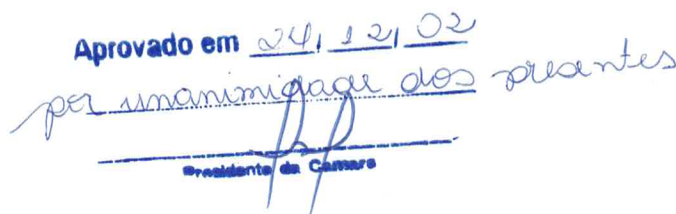 Aprovado em 24, 12, 02
por unanimidade dos presentes
Presidente da Camara